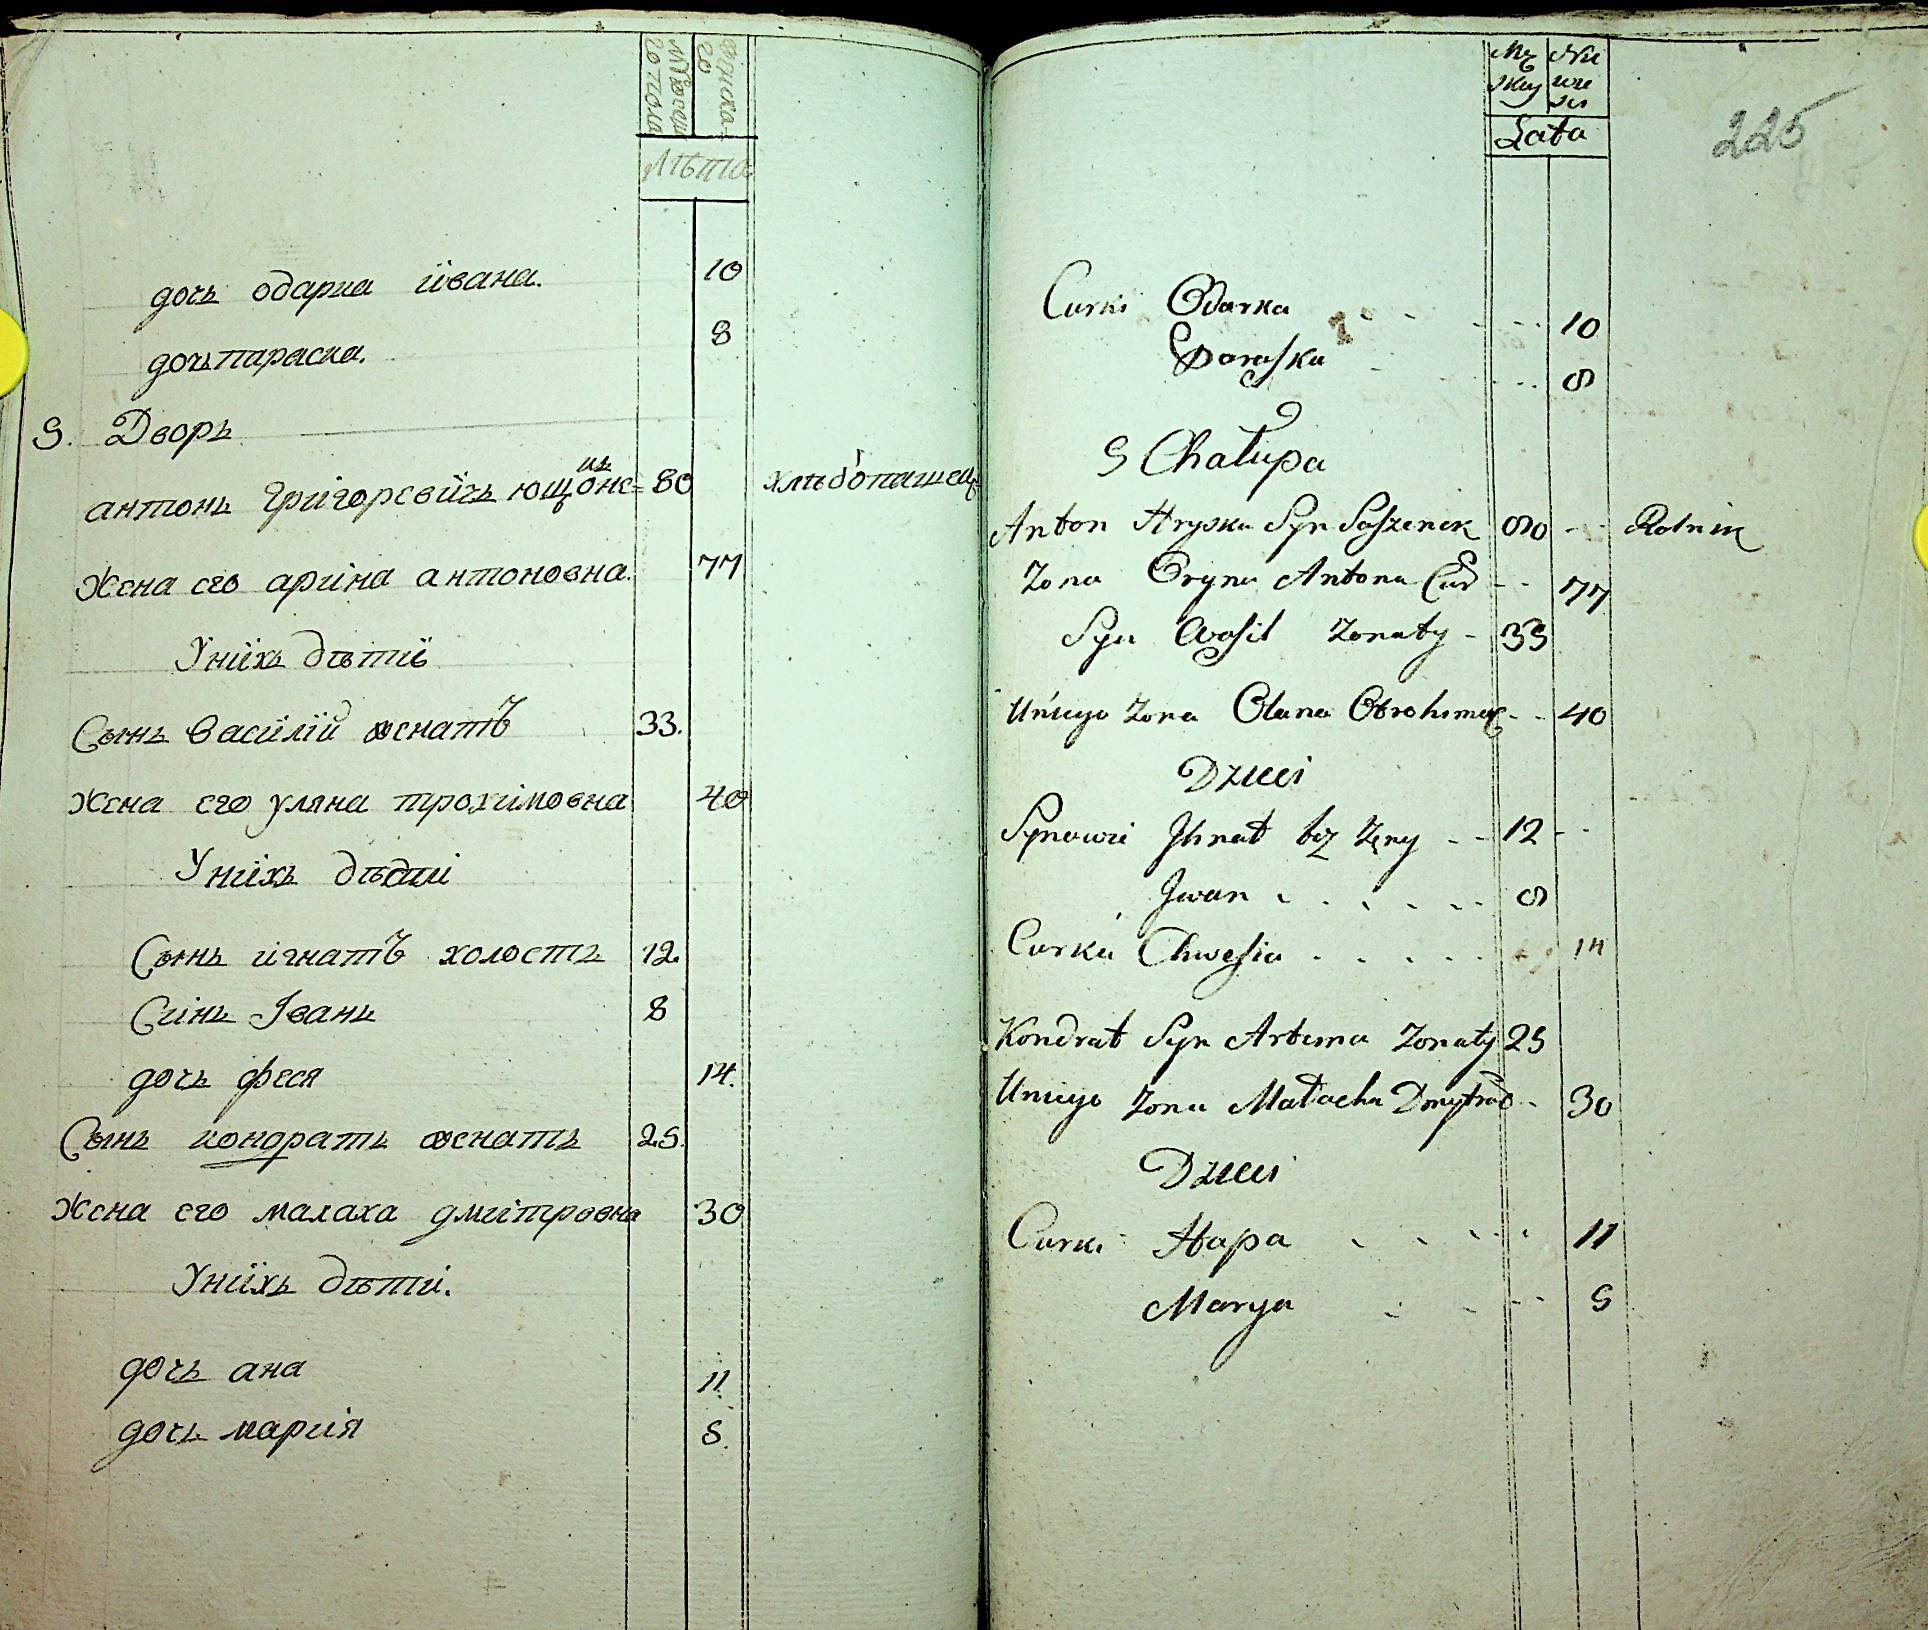 мужеска
го пола
женска
го
лѣта
дочь одарка ивана. 10
дочь параска. 8
9. Дворъ
антонъ григоревичь ющонекъ 80 хлѣбопашец
Жена его арина антоновна. 77
У нихъ дѣти
Сынъ василий женатъ 33.
Жена его уляна трохимовна 40
У нихъ дѣти
Сынъ игнатъ холостъ 12.
Синъ Іванъ 8
дочь феся 14.
Сынъ кондратъ женатъ 25.
Жена его малаха дмитровна 30
У нихъ дѣти.
дочь ана 11.
дочь мария 5.
Mę
skey
Nie
wie
scı
Lata
225
Curki Odarka 10
Paraska 8
9 Chałupa
Anton Hryska Syn 80 Rolnik
Zona Oryna Antona Cur 77
Syn Wasil Zonaty 33
Uniego Zona Olana 40
Dzieci
Synowie Ihnat bez Zeny 12
Iwan 8
Curka Chwesia 14
Kondrat Syn Artema Zonaty 25
Uniego Zona Małacha Dmytra 30
Dzieci
Curki Hapa 11
Marya 5